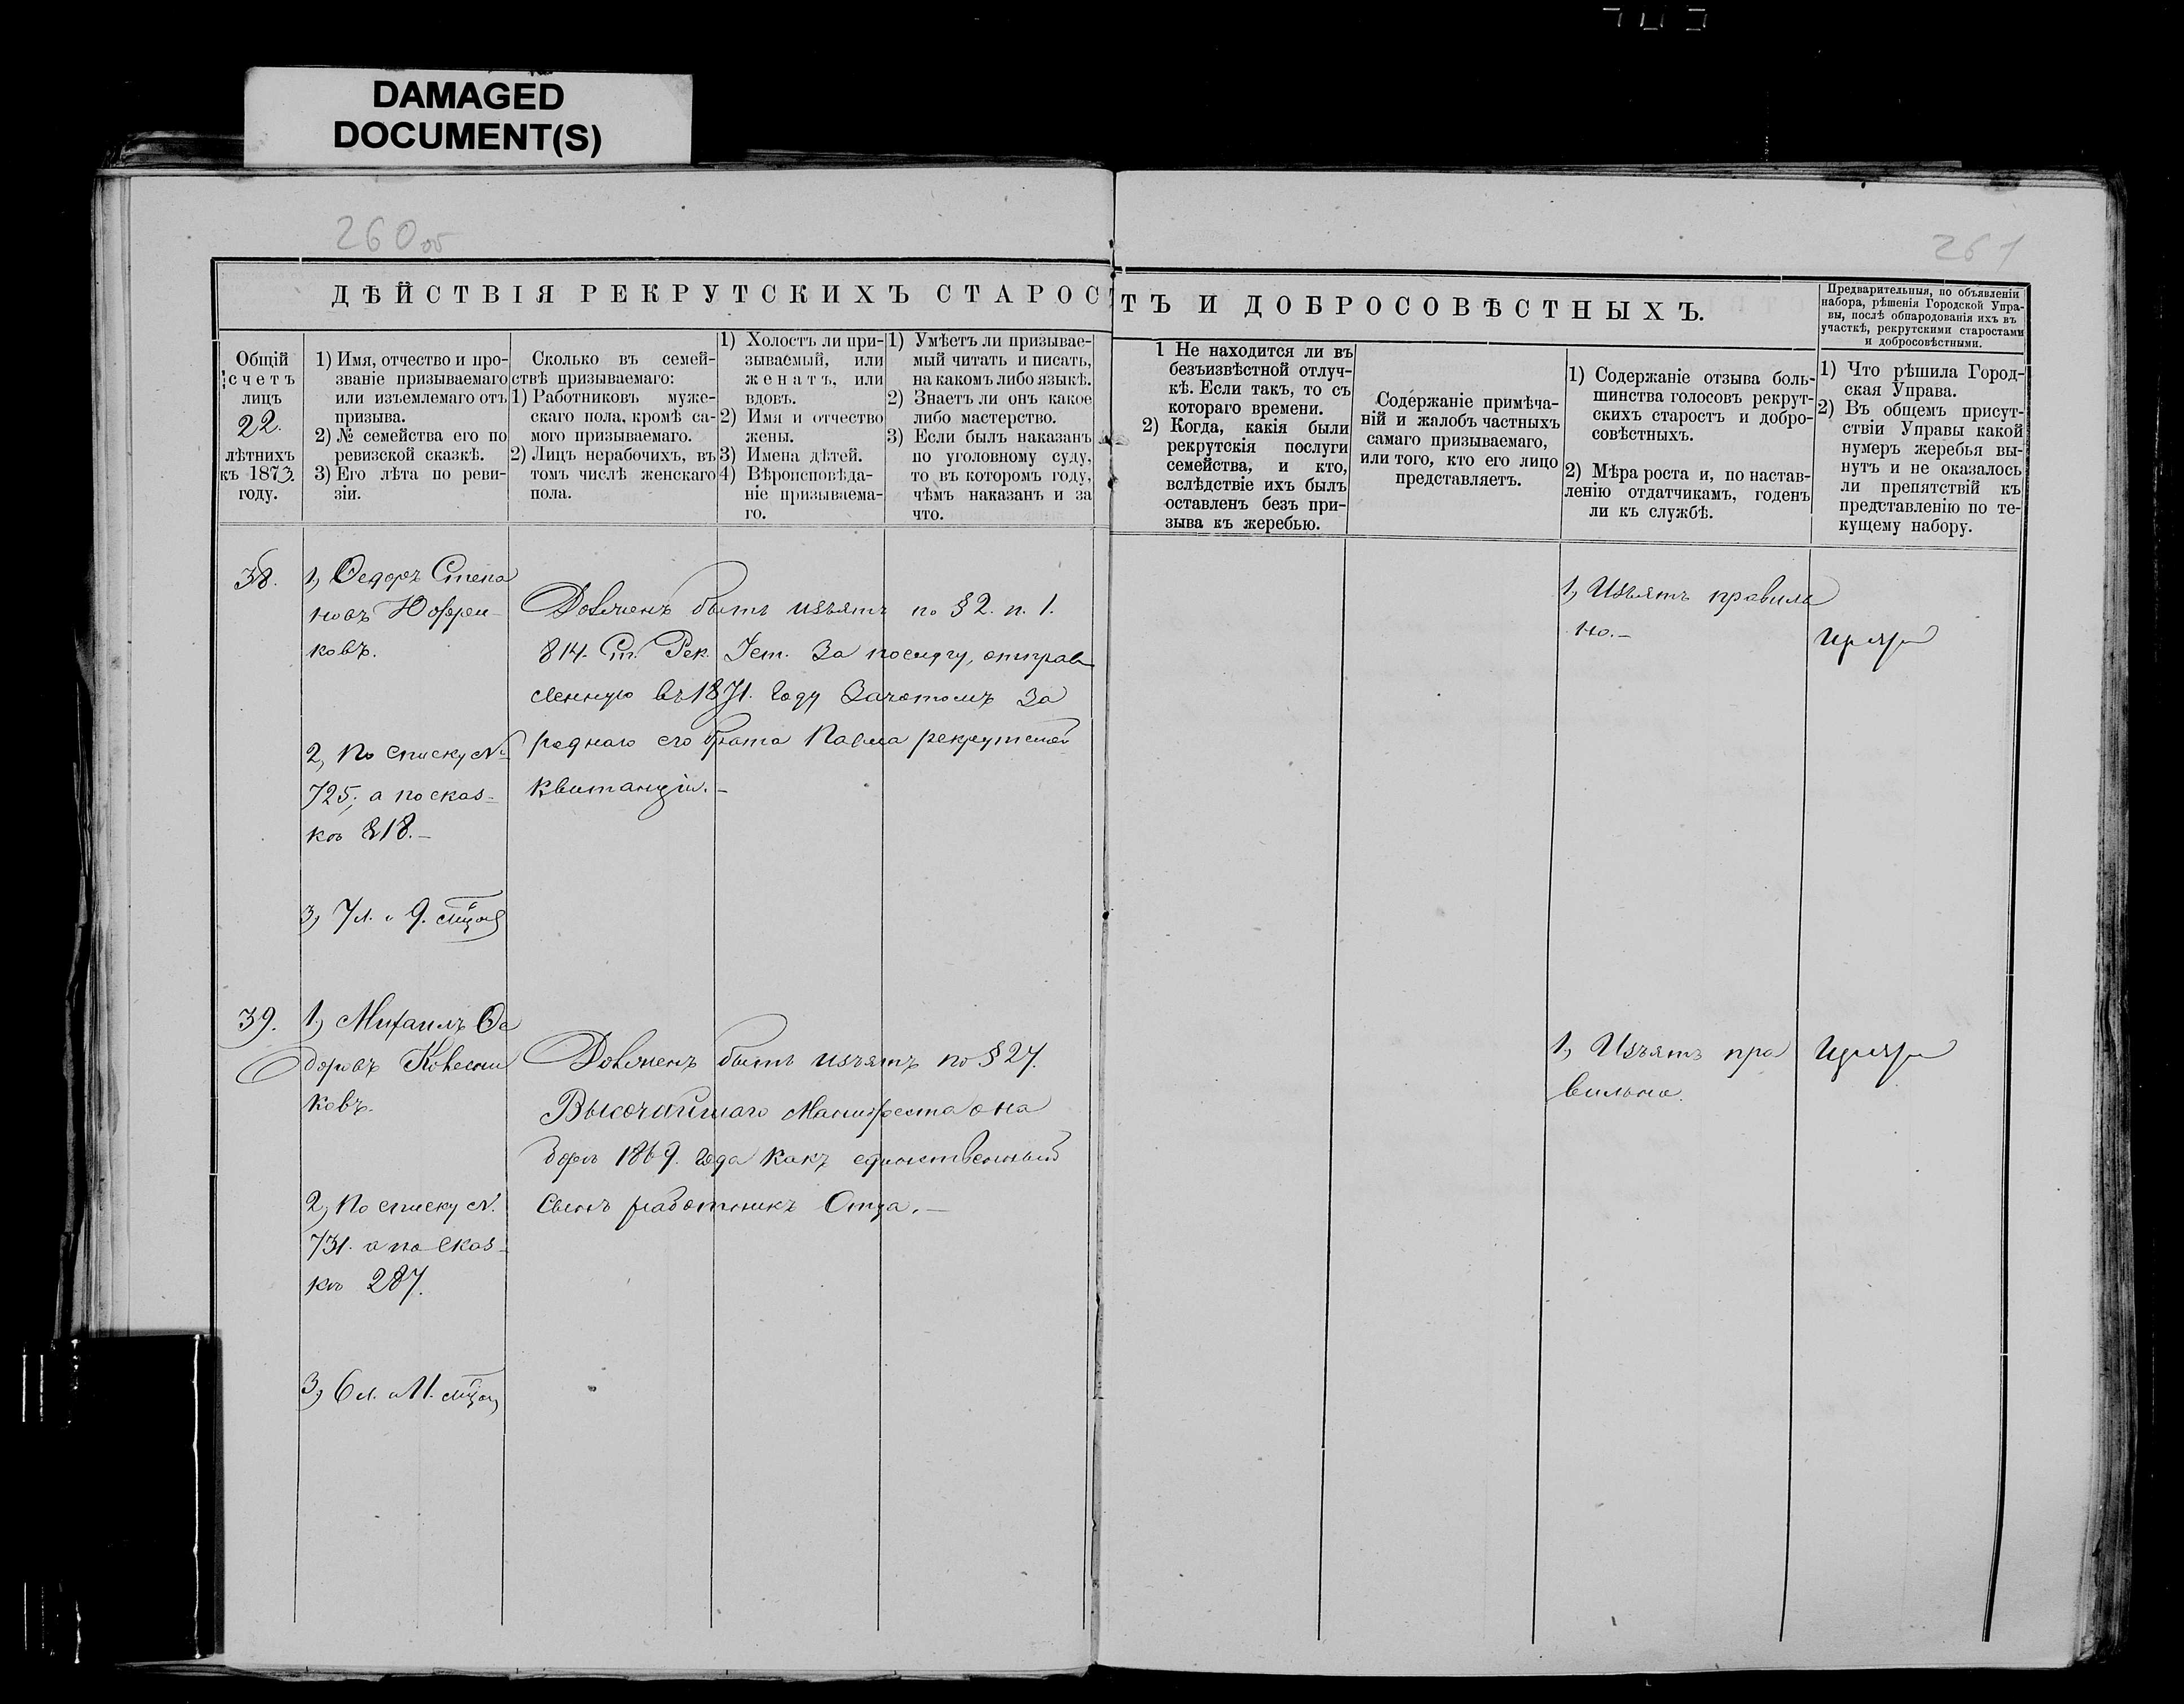 DAMAGED
DOCUMENT(S)
260 об
261
ДѢЙСТВІЯ РЕКРУТСКИХЪ СТАРОСТЪ И ДОБРОСОВѢСТНЫХЪ.
Предварительныя, по объявленіи
набора, рѣшенія Городской Упра-
вы, послѣ обнародованія ихъ въ
участкѣ, рекрутскими старостами
и добросовѣстными.
Общій
счетъ
лицъ
22.
лѣтнихъ
къ 1873.
году.
1) Имя, отчество и про-
званіе призываемаго
или изъемлемаго отъ
призыва.
2) № семейства его по
ревизской сказкѣ.
3) Его лѣта по реви-
зіи.
Сколько въ семей-
ствѣ призываемаго:
1) Работниковъ муже-
скаго пола, кромѣ са-
мого призываемаго.
2) Лицъ нерабочихъ, въ
томъ числѣ женскаго
пола.
1) Холостъ ли при-
зываемый, или
женатъ, или
вдовъ.
2) Имя и отчество
жены.
3) Имена дѣтей.
4) Вѣроисповѣда-
ніе призываема-
го.
1) Умѣетъ ли призывае-
мый читать и писать,
на какомъ либо языкѣ.
2) Знаетъ ли онъ какое
либо мастерство.
3) Если былъ наказанъ
по уголовному суду,
то въ которомъ году,
чѣмъ наказанъ и за
что.
1 Не находится ли въ
безъизвѣстной отлуч-
кѣ. Если такъ, то съ
котораго времени.
2) Когда, какія были
рекрутскія послуги
семейства, и кто,
вслѣдствіе ихъ былъ
оставленъ безъ при-
зыва къ жеребью.
Содержаніе примѣча-
ній и жалобъ частныхъ
самаго призываемаго,
или того, кто его лицо
представляетъ.
1) Содержаніе отзыва боль-
шинства голосовъ рекрут-
скихъ старостъ и добро-
совѣстныхъ.
2) Мѣра роста и, по настав-
ленію отдатчикамъ, годенъ
ли къ службѣ.
1) Что рѣшила Город-
ская Управа.
2) Въ общемъ присут-
ствіи Управы какой
нумеръ жеребья вы-
нутъ и не оказалось
ли препятствій къ
представленію по те-
кущему набору.
38.
1, Ѳедоръ Степа
новъ
ковъ.
2, По списку №
725; а по сказ-
кѣ 218.-
3, 7 л. и 9.
Долженъ быть изъятъ по § 2. п. 1.
814. Ст. Рек. Уст. За послугу, отправ
ленную въ 1871. году Зачетомъ За
роднаго его брата Павла рекрутской
квитанціи.-
1, Изъятъ правиль
но.-
39.
1, Михаилъ Ѳе
доровъ Колесни
ковъ.
2, По списку №.
731. а по сказ-
кѣ 287.
3, 6 л. и 11.
Долженъ быть изъятъ по § 27.
Высочайшаго Манифеста о на
борѣ 1869. года какъ единственный
Сынъ работникъ Отца.-
1, Изъятъ пра
вильно.